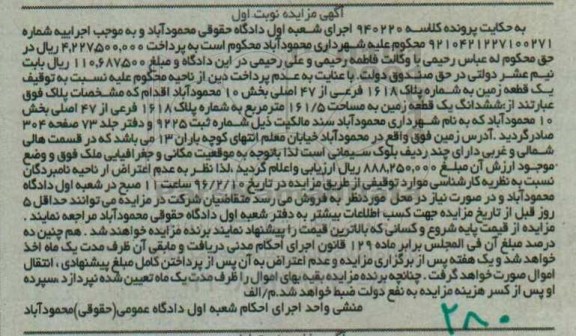 آگهی مزایده نوبت اول
به حکایت پرونده کلاسه ۹۴۰۲۲۰ اجرای شعبه اول دادگاه حقوقی محمودآباد و به موجب اجراییه شماره
۹۲۱۰۴۲۱۲۲۷۱۰۰۲۷۱ محکوم علیه شهرداری محمودآباد محکوم است به پرداخت ۴,۲۲۷۵۰۰,۰۰۰ ریال در
حق محکوم له عباس رحیمی با وکالت فاطمه رحیمی و علی رحیمی در این دادگاه و مبلغ ۱۱۰,۶۸۷۵۰۰ ریال بابت
نیم عشر دولتی در حق صندوق دولت. با عنایت به عدم پرداخت دین از ناحیه محکوم علیه نسبت به توقیف
یک قطعه زمین به شماره پلاک ۱۶۱۸ فرعی از ۴۷ اصلی بخش ۱۰ محمودآباد اقدام که مشخصات پلاک فوق
عبارتند از:ششدانگ یک قطعه زمین به مساحت ۱۶۱/۵ مترمربع به شماره پلاک ۱۶۱۸ فرعی از ۴۷ اصلی بخش
۱۰ محمودآباد که به نام شهرداری محمودآباد سند مالکیت ذیل شماره ثبت ۹۲۲۵ و دفتر جلد ۷۳ صفحه ۳۰۴
صادر گردید .آدرس زمین فوق واقع در محمودآباد خیابان معلم انتهای کوچه باران ۱۳ می باشد که در قسمت هالی
شمالی و غربی دارای چند ردیف بلوک سیمانی است لذا باتوجه به موقعیت مکانی و جغرافیایی ملک فوق و وضع
موجود ارزش آن مبلغ ۸۸۸,۲۵۰,۰۰۰ ریال ارزیابی و اعلام گردید .لذا نظر به عدم اعتراض از ناحیه نامبردگان
نسبت به نظریه کارشناسی موارد توقیفی از طریق مزایده در تاریخ ۹۶/۲/۱۰ ساعت ۱۱ صبح در شعبه اول دادگاه
محمودآباد و در صورت نیاز در محل موردنظر به فروش می رسد متقاضیان شرکت در مزایده می توانند حداقل ۵
روز قبل از تاریخ مزایده جهت کسب اطلاعات بیشتر به دفتر شعبه اول دادگاه حقوقی محمودآباد مراجعه نمایند .
مزایده از قیمت پایه شروع و کسانی که بالاترین قیمت را پیشنهاد نمایند برنده مزایده خواهند شد . هم چنین ده
درصد مبلغ آن فی المجلس برابر ماده ۱۲۹ قانون اجرای احکام مدنی دریافت و مابقی آن ظرف مدت یک ماه اخذ
خواهد شد و یک هفته پس از برگزاری مزایده و عدم اعتراض به آن پس از پرداختن کامل مبلغ پیشنهادی ، انتقال
اموال صورت خواهد گرفت . چنانچه برنده مزایده بقیه بهای اموال را ظرف مدت یک ماه تعیین شده نپردازد .سپرده
او پس از کسر هزینه مزایده به نفع دولت ضبط خواهد شد.م/الف
منشی واحد اجرای احکام شعبه اول دادگاه عمومی(حقوقی)محمودآباد
۲۸۰